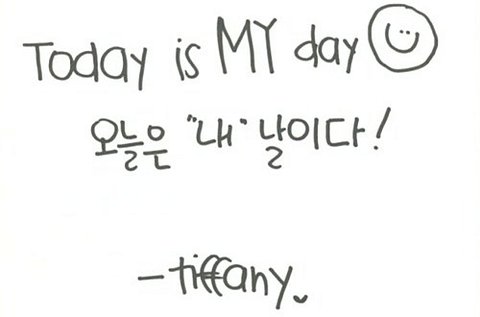 Today is MY day
오늘은 "내" 날이다!
-tiffany.